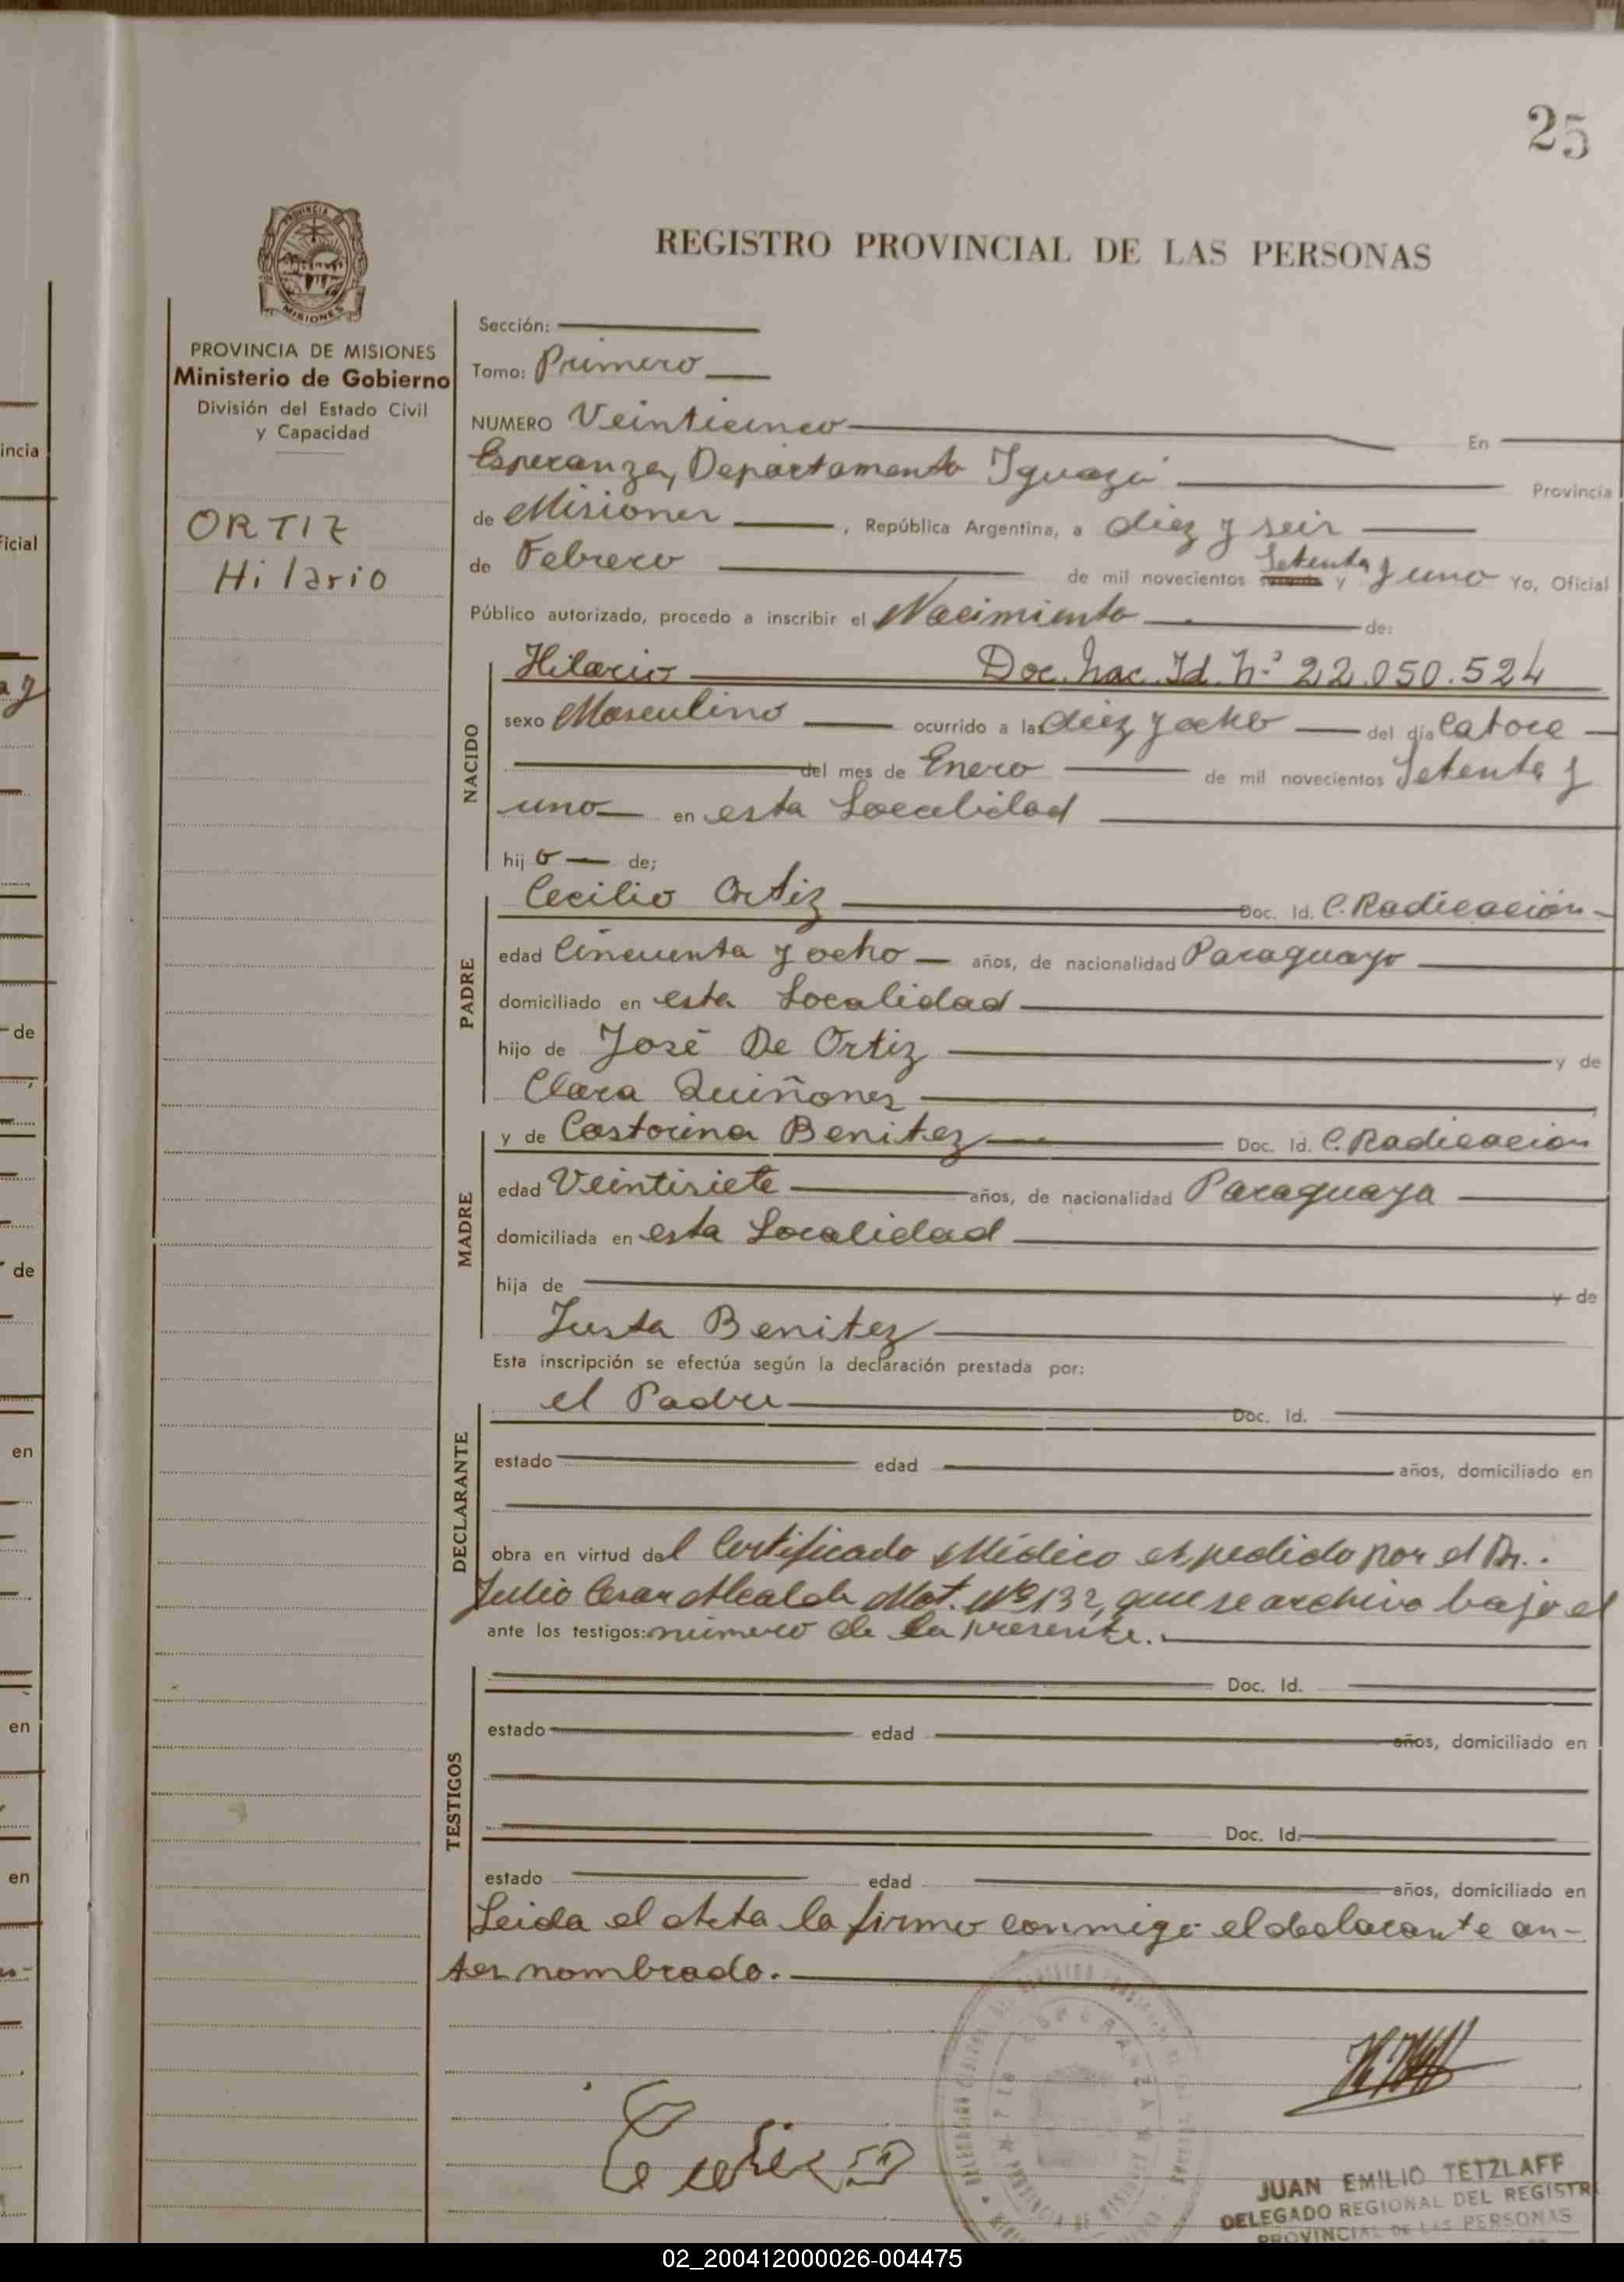 25
REGISTRO PROVINCIAL DE LAS PERSONAS
PROVINCIA DE
MISIONES
PROVINCIA DE MISIONES
Ministerio de Gobierno
División del Estado Civil
y Capacidad
ORTIZ
Hilario
Sección:
Tomo: Primero
NUMERO Veinticinco En
Esperanza, Departamento Iguazú Provincia
de Misiones, República Argentina, a diez y seis
de Febrero de mil novecientos Setenta y y uno Yo, Oficial
Público autorizado, procedo a inscribir el Nacimiento de:
NACIDO
Hilario Doc. Nac. Id. Nº 22.050.524
sexo Masculino ocurrido a las diez y ocho del día Catorce
del mes de Enero de mil novecientos Setenta y
uno en esta Localidad
hijo de;
PADRE
Cecilio Ortiz Doc. Id. C. Radicación
edad Cincuenta y ocho años, de nacionalidad Paraguayo
domiciliado en esta Localidad
hijo de José De Ortiz y de
Clara Quiñones
MADRE
y de Castorina Benitez Doc. Id. C. Radicación
edad Veintisiete años, de nacionalidad Paraguaya
domiciliada en esta Localidad
hija de y de
Justa Benitez
Esta inscripción se efectúa según la declaración prestada por:
DECLARANTE
el Padre Doc. Id.
estado edad años, domiciliado en
obra en virtud del Certificado Médico expedido por el Dr.
Julio Cesar Alcalde Mat. Nº 132, que se archiva bajo el
ante los testigos: número de la presente.
TESTIGOS
Doc. Id.
estado edad años, domiciliado en
Doc. Id.
estado edad años, domiciliado en
Leida el Acta la firma conmigo el declarante an-
tes nombrado.
JUAN EMILIO TETZLAFF
DELEGADO REGIONAL DEL REGISTR
PROVINCIAL DE LAS PERSONAS
02_200412000026-004475